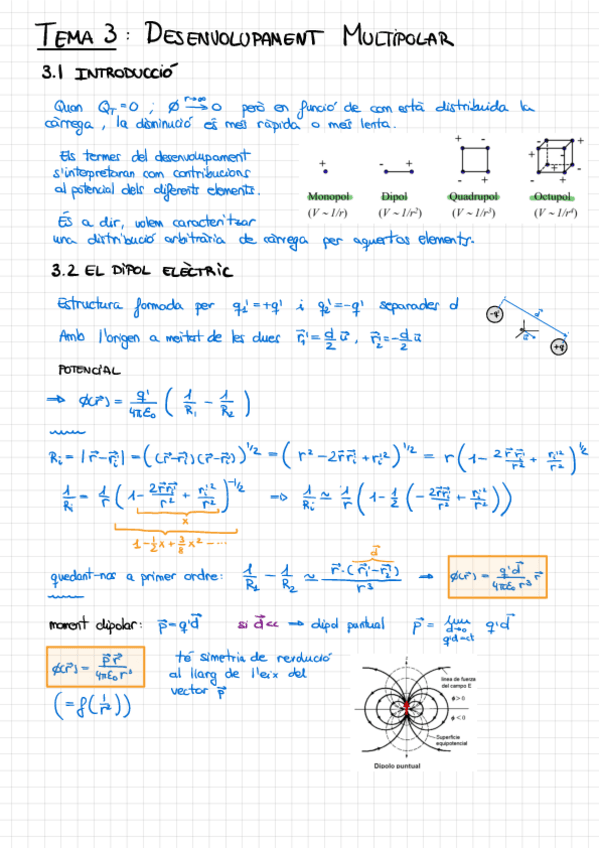 TEMA 3 : DESENVOLUPAMENT MULTIPOLAR
3.1 INTRODUCCIÓ
Quan Q_T = 0 ; φ →(r→∞) 0 però en funció de com està distribuida la
càrrega, la disminució és més ràpida o més lenta.
Els termes del desenvolupament
s'interpretaran com contribucions
al potencial dels diferents elements.
És a dir, volem caracteritzar
una distribució arbitrària de càrrega per aquestos elements.
+ - + - + - + - + - +
Monopol Dipol Quadrupol Octupol
(V ~ 1/r) (V ~ 1/r²) (V ~ 1/r³) (V ~ 1/r⁴)
3.2 EL DIPOL ELÈCTRIC
Estructura formada per q₁' = +q' i q₂' = -q' separades d
Amb l'origen a meitat de les dues r⃗₁' = d/2 u⃗ , r⃗₂' = -d/2 u⃗
-q' d⃗ u⃗ +q'
POTENCIAL
⇒ φ(r⃗) = q'/4πε₀ ( 1/R₁ - 1/R₂ )
Rᵢ = |r⃗ - r⃗ᵢ'| = ((r⃗-r⃗ᵢ')(r⃗-r⃗ᵢ'))^1/2 = ( r² - 2r⃗r⃗ᵢ' + rᵢ'² )^1/2 = r ( 1 - 2r⃗r⃗ᵢ'/r² + rᵢ'²/r² )^1/2
1/Rᵢ = 1/r ( 1 - 2r⃗r⃗ᵢ'/r² + rᵢ'²/r² )^-1/2 ⇒ 1/Rᵢ ≃ 1/r ( 1 - 1/2 ( - 2r⃗r⃗ᵢ'/r² + rᵢ'²/r² ))
x
1 - 1/2 x + 3/8 x² - ...
d⃗
quedant-nos a primer ordre: 1/R₁ - 1/R₂ ≃ r⃗·(r⃗₁'-r⃗₂')/r³ → φ(r⃗) = q'd⃗/4πε₀r³ r⃗
moment dipolar: p⃗ = q'd⃗ si d⃗<< → dipol puntual p⃗ = lim d→0 q'd=ct q'd⃗
φ(r⃗) = p⃗r⃗/4πε₀r³
(= f(1/r²))
té simetria de revolució
al llarg de l'eix del
vector p⃗
línea de fuerza
del campo E
φ > 0
φ < 0
Superficie
equipotencial
Dipolo puntual